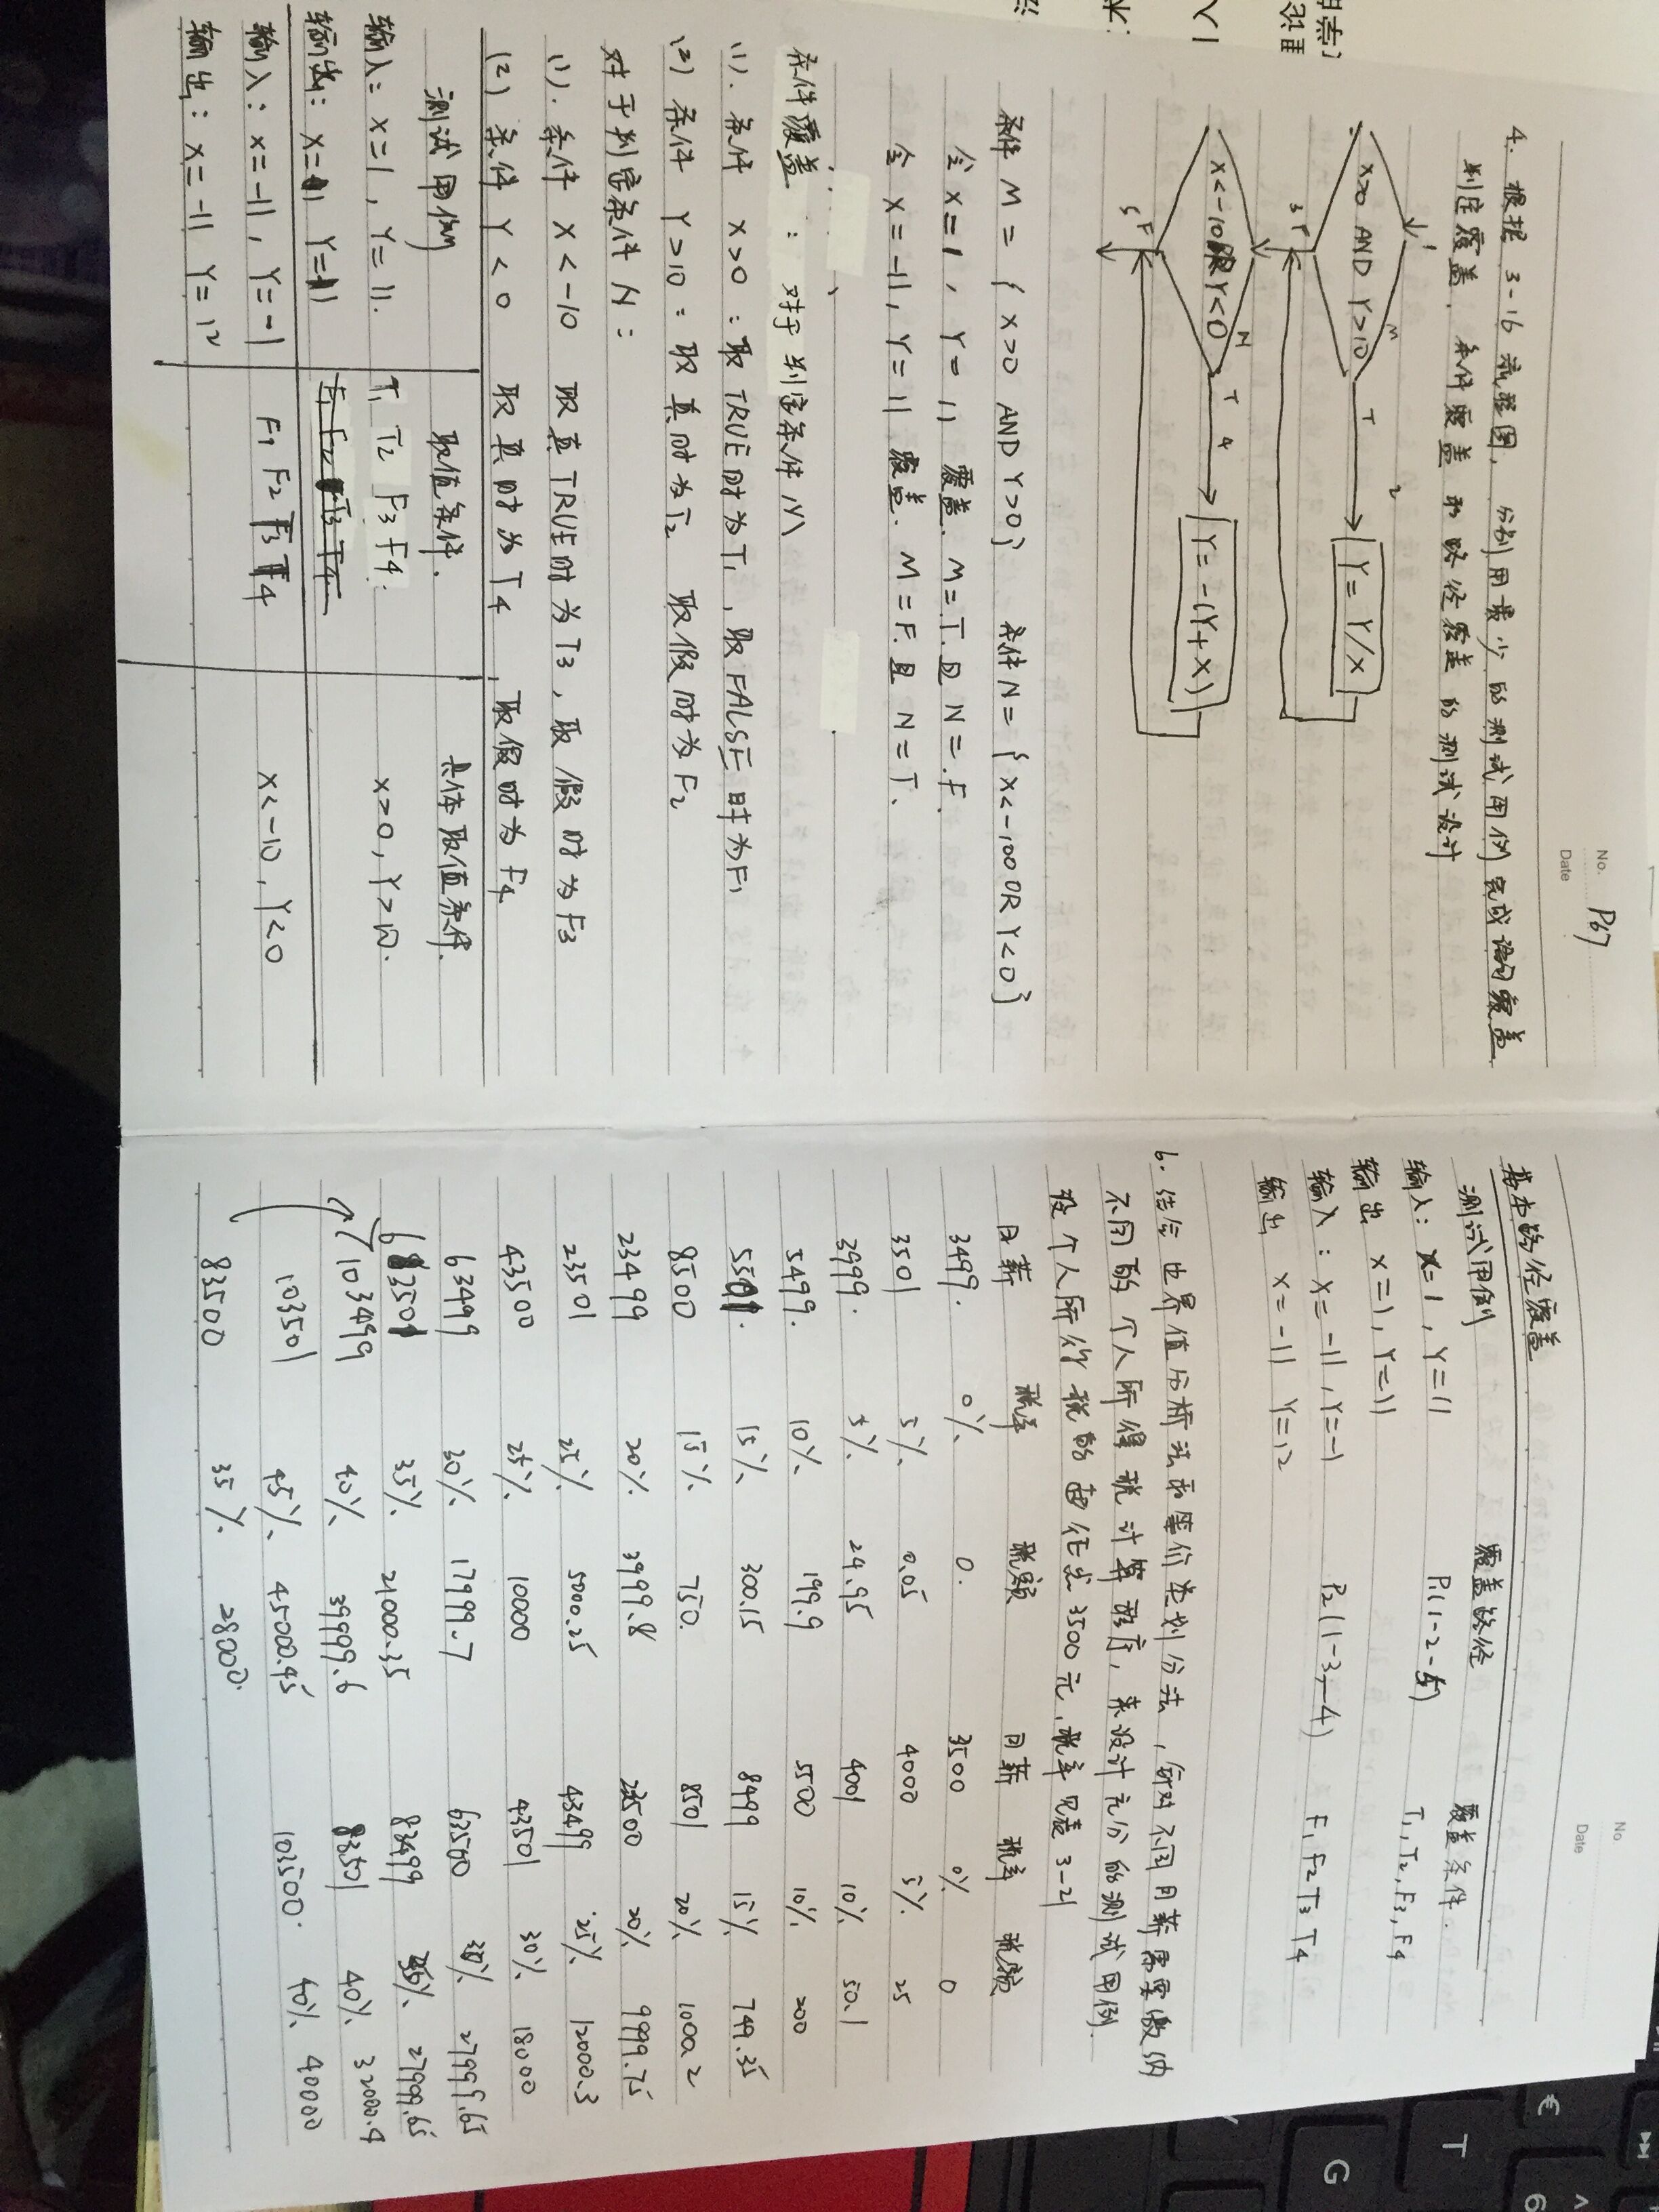 No.
P67
Date
4. 根据 3-16 流程图, 分别用最少的测试用例完成语句覆盖
判定覆盖, 条件覆盖和路径覆盖的测试设计
1
X>0 AND Y>10
M
T
2
Y=Y/X
3
F
X<-10 OR Y<0
N
T
4
Y=-(Y+X)
5
F
条件M={X>0 AND Y>0} 条件N={X<-100 OR Y<0}
令X=1, Y=11 覆盖. M=T.且N=.F.
令X=-11, Y=11 覆盖. M=F.且N=T.
条件覆盖: 对于判定条件M
(1). 条件 X>0: 取TRUE时为T1, 取FALSE时为F1
(2) 条件 Y>10: 取真时为T2 取假时为F2
对于判定条件N:
(1). 条件 X<-10 取真TRUE时为T3, 取假时为F3
(2) 条件 Y<0 取真时为T4, 取假时为F4
测试用例 取值条件. 具体取值条件.
输入: X=1, Y=11. T1 T2 F3 F4. X>0, Y>10.
输出: X=1 Y=11
输入: X=-11, Y=-1 F1 F2 T3 T4 X<-10, Y<0
输出: X=-11 Y=12
No.
Date
基本路径覆盖
测试用例 覆盖路径 覆盖条件.
输入: X=1, Y=11 P1(1-2-5) T1, T2, F3, F4
输出 X=1, Y=11
输入: X=-11, Y=-1 P2(1-3-4) F1 F2 T3 T4
输出 X=-11 Y=12
6. 结合边界值分析法和等价类划分法, 针对不同月薪需要缴纳
不同的个人所得税计算程序, 来设计充分的测试用例.
设个人所得税的起征点3500元, 税率见表3-21
月薪 税率 税额 月薪 税率 税额
3499. 0% 0. 3500 0% 0
3501 5% 0.05 4000 5% 25
3999. 5% 24.95 4001 10% 50.1
5499. 10% 199.9 5500 10% 200
5501. 15% 300.15 8499 15% 749.35
8500 15% 750. 8501 20% 1000.2
23499 20% 3999.8 23500 20% 9999.75
23501 25% 5000.25 43499 25% 12000.3
43500 25% 10000 43501 30% 18000
63499 30% 17999.7 63500 30% 27999.65
63501 35% 21000.35 83499 35% 27999.65
103499 40% 39999.6 83501 40% 32000.4
103501 45% 45000.45 103500. 40% 40000
83500 35% 28000.